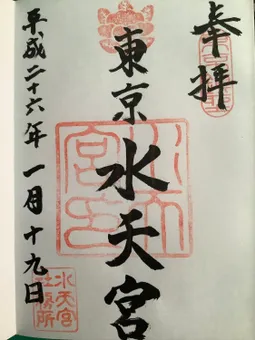 奉拝
東京水天宮
平成二十六年一月十九日
水天宮
社務所